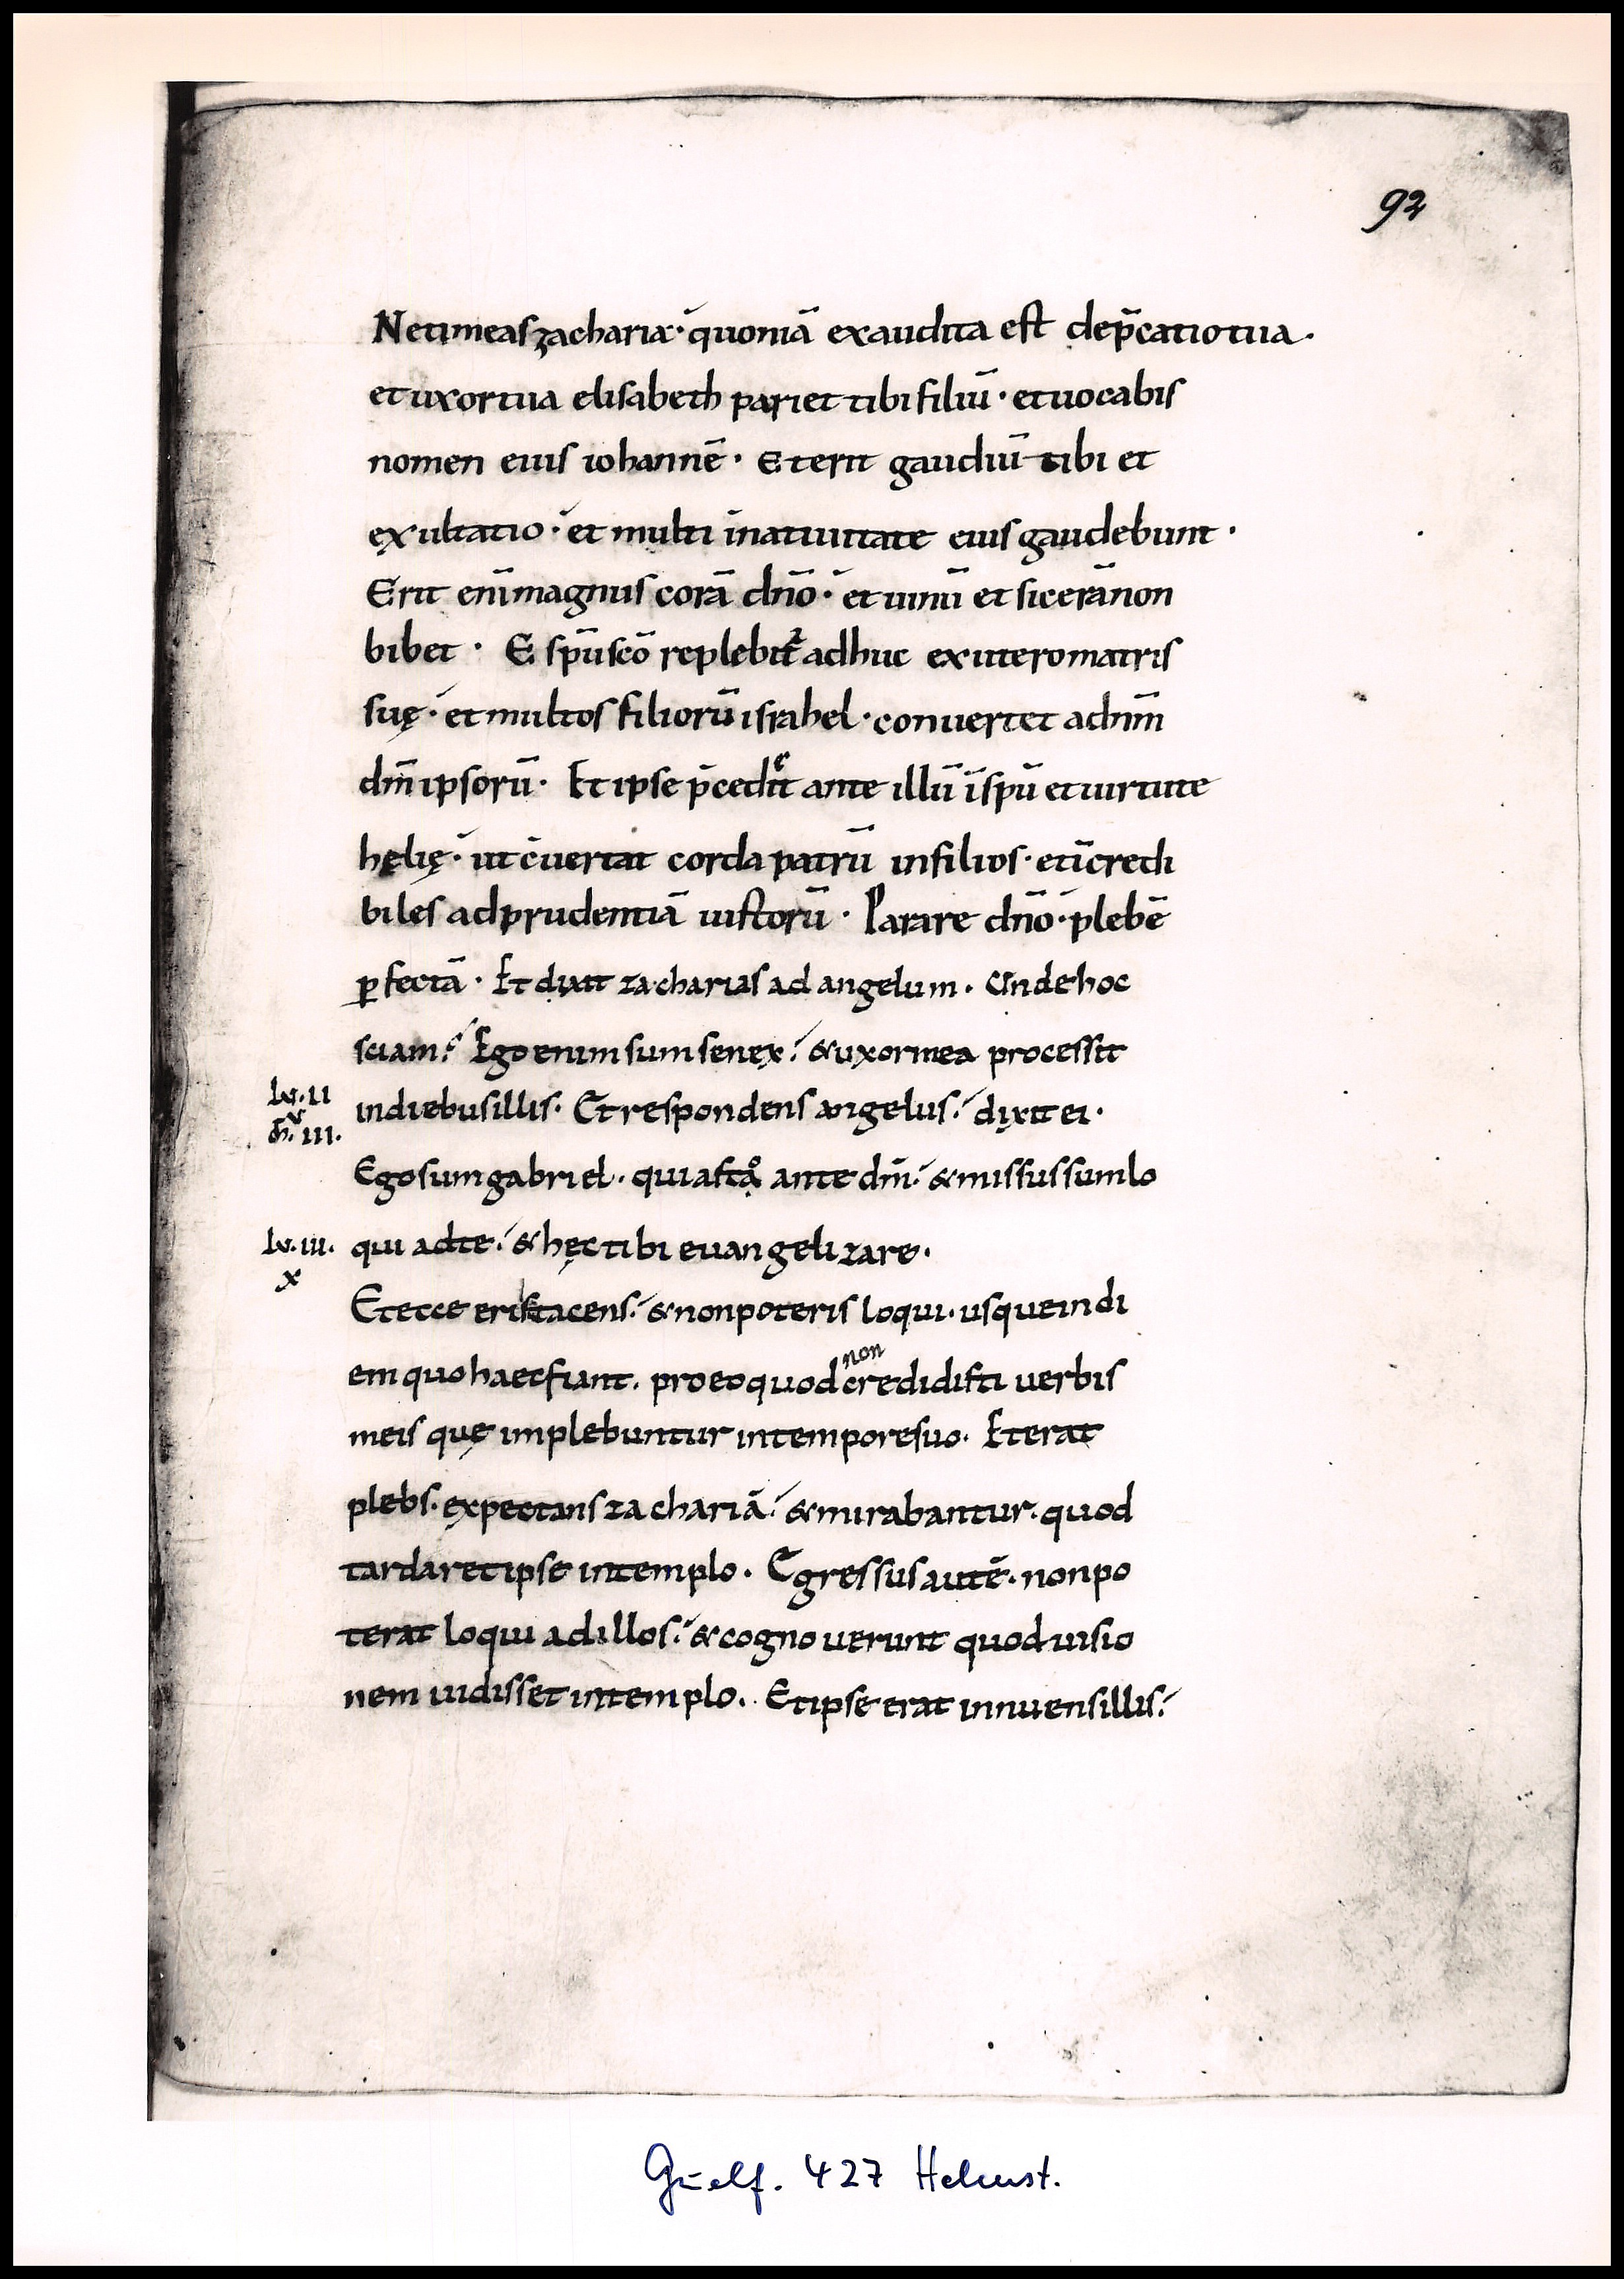 92
Netimeas zacharia· quoniā exaudita est dep̄catio tua·
et uxor tua elisabeth pariet tibi filiū· et uocabis
nomen eius iohannē· Et erit gaudiū tibi et
exultatio· et multi inatiuitate eius gaudebunt·
Erit enī magnus corā dn̄o· et uinū et sicerā non
bibet· E sp̄u sc̄o replebit᷑ adhuc ex utero matris
suę· et multos filiorū israhel· conuertet ad nm̄
dm̄ ipsorū· Et ipse p̄cedet ante illū ī sp̄u et uirtute
hęlię· ut c̄uertat corda patrū in filios· et īcredi
biles ad prudentiā iustorū· Parare dn̄o· plebē
ꝑfectā· Et dixit zacharias ad angelum· Unde hoc
sciam? Ego enim sum senex· & uxor mea processit
lv· II
v
in diebus illis· Et respondens angelus· dixit ei·
III·
Ego sum gabriel· qui asto ante dm̄· & missus sum lo
lv· III·
x
qui ad te· & hęc tibi euangelizare·
Et ecce eris tacens· & non poteris loqui· usque in di
em quo haec fiant· pro eo quod non credidisti uerbis
meis quę implebuntur in tempore suo· Et erat
plebs· expectans zachariā· & mirabantur· quod
tardaret ipse in templo· Egressus autē· non po
terat loqui ad illos· & cognouerunt quod uisio
nem uidisset in templo· Et ipse erat innuens illis·
Guelf. 427 Helmst.